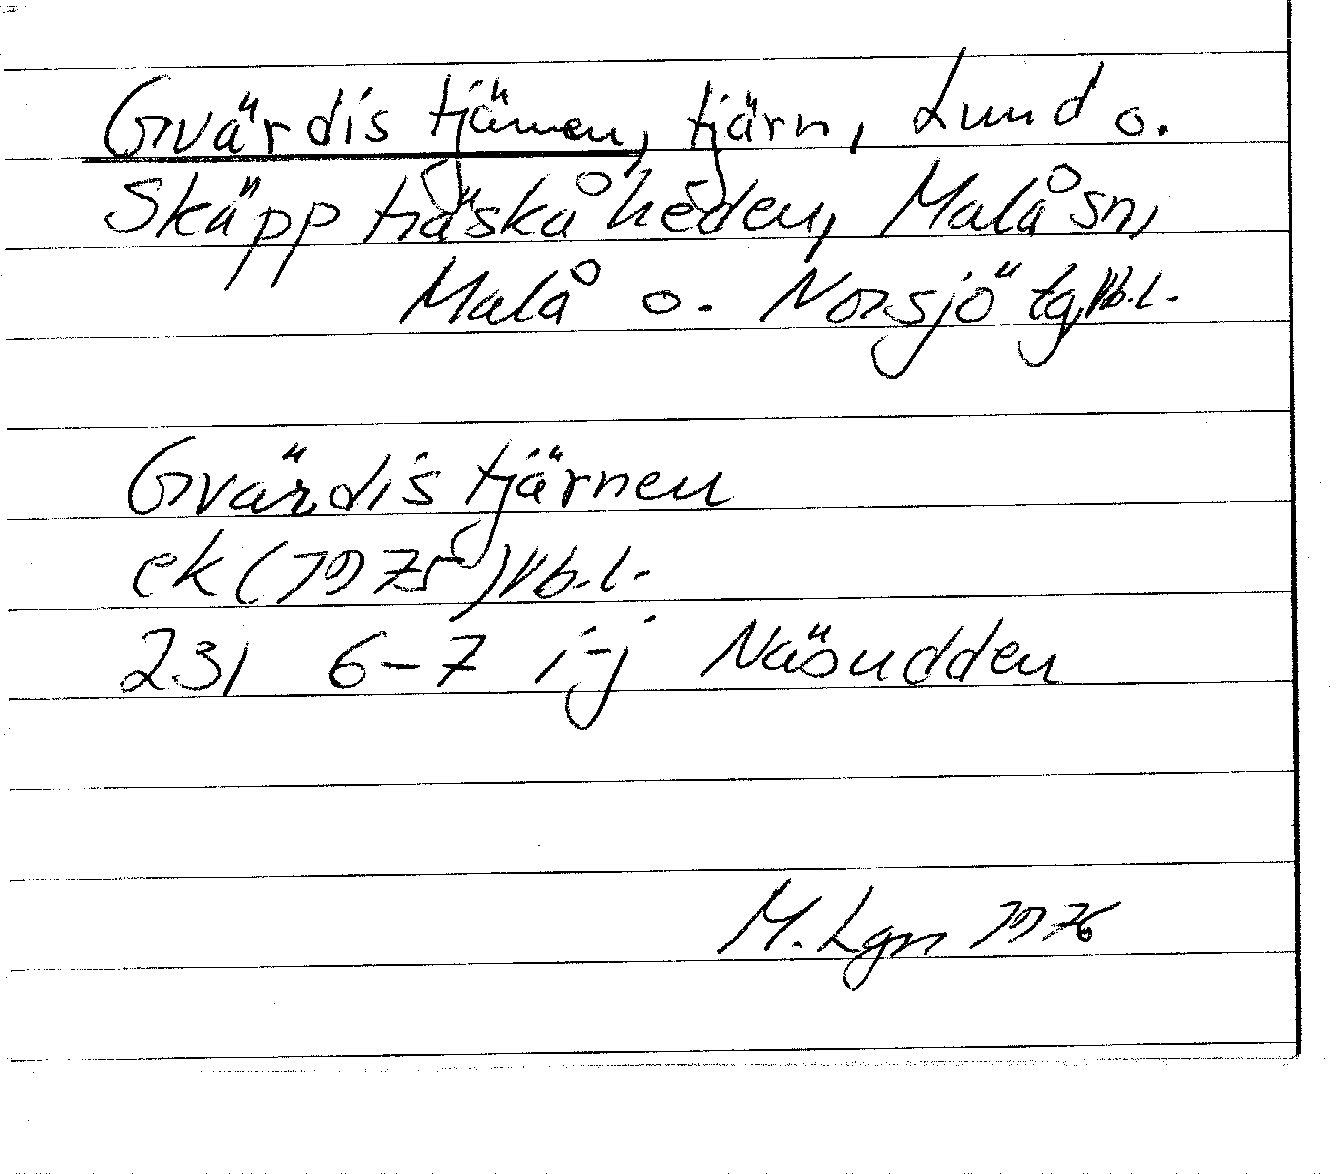 Gvärdistjärnen, tjärn, Lund o.
Skäppträskåheden, Malå sn,
Malå o. Norsjö tg, Vb.l.
Gvärdistjärnen
ek (1975) Vb.l.
23I 6-7 i-j Näsudden
M. Lgn 1976